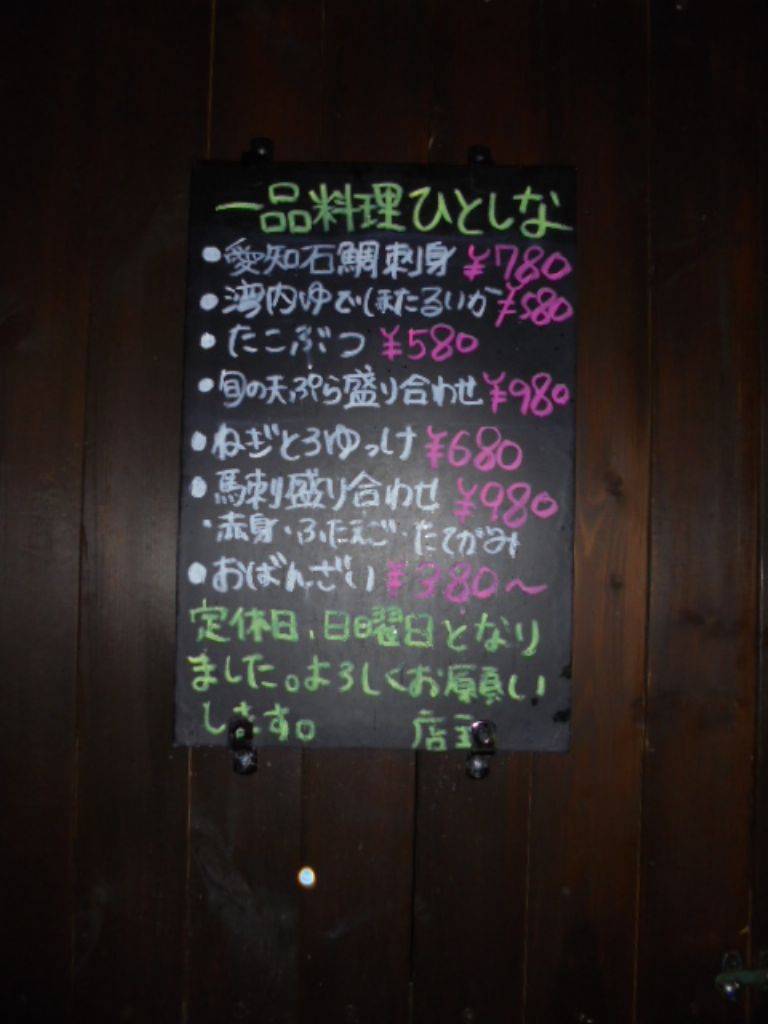 一品料理ひとしな
•愛知石鯛刺身 ¥780
•湾内ゆでほたるいか ¥580
•たこぶつ ¥580
•旬の天ぷら盛り合わせ ¥980
•ねぎとろゆっけ ¥680
•馬刺盛り合わせ ¥980
・赤身・ふたえご・たてがみ
•おばんざい ¥380～
定休日、日曜日となり
ました。よろしくお願い
します。 店主